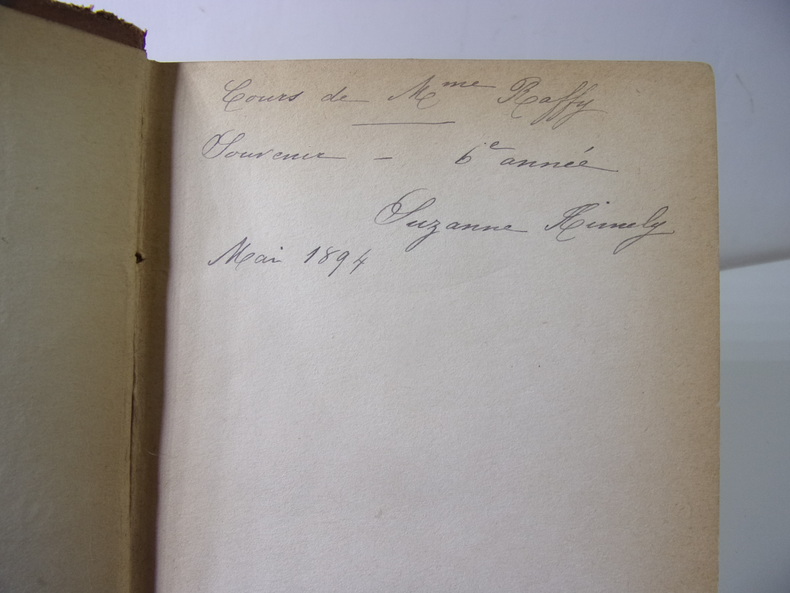 Cours de Mme Raffy
Souvenir - 6e année
Suzanne
Mai 1894